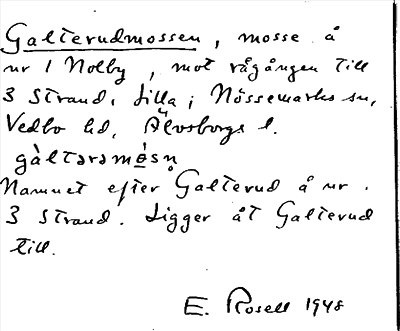 Galterudmossen, mosse å
nr 1 Nolby, mot rågången till
3 Strand, Lilla; Nössemarks sn,
Vedbo hd, Älvsborgs l.
gàltərəmòsn̥
Namnet efter Galterud å nr.
3 Strand. Ligger åt Galterud
till.
E. Rosell 1948